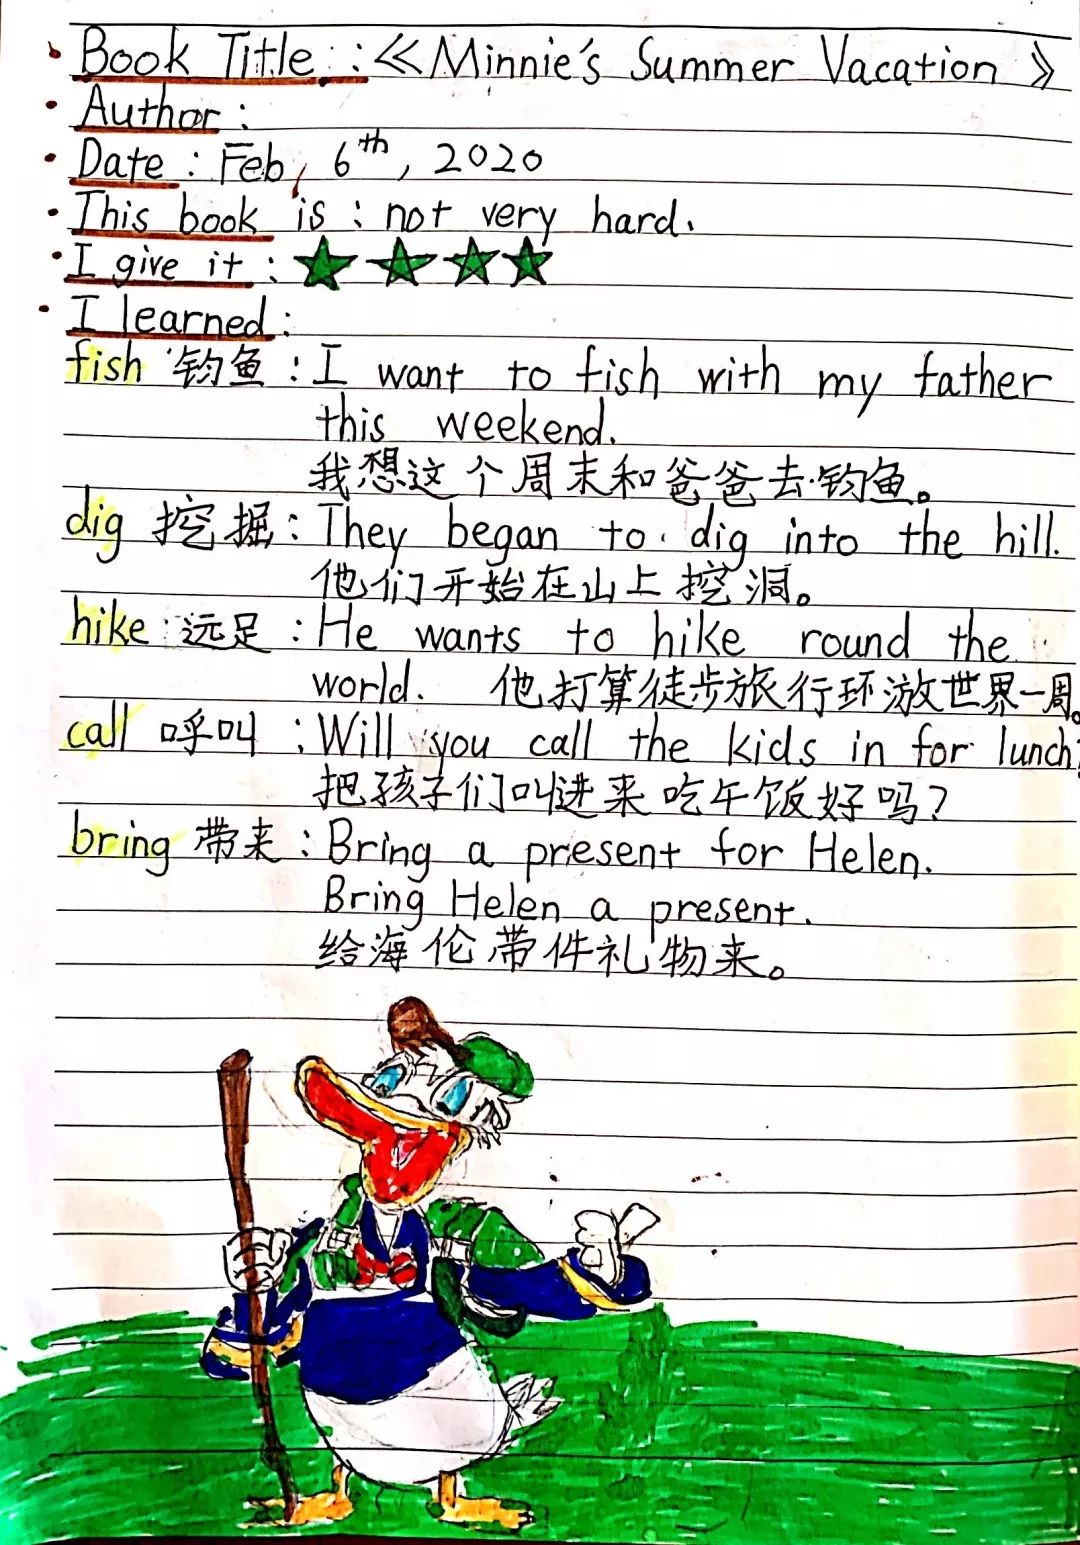 Book Title : 《Minnie's Summer Vacation》
Author :
Date : Feb, 6th, 2020
This book is : not very hard.
I give it : ★★★★
I learned :
fish 钓鱼 : I want to fish with my father
this weekend.
我想这个周末和爸爸去钓鱼。
dig 挖掘 : They began to dig into the hill.
他们开始在山上挖洞。
hike 远足 : He wants to hike round the
world. 他打算徒步旅行环游世界一周。
call 呼叫 : Will you call the kids in for lunch?
把孩子们叫进来吃午饭好吗?
bring 带来 : Bring a present for Helen.
Bring Helen a present.
给海伦带件礼物来。